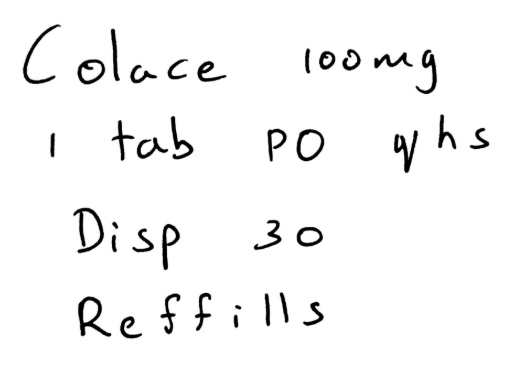 Colace 100mg
1 tab PO qhs
Disp 30
Reffills